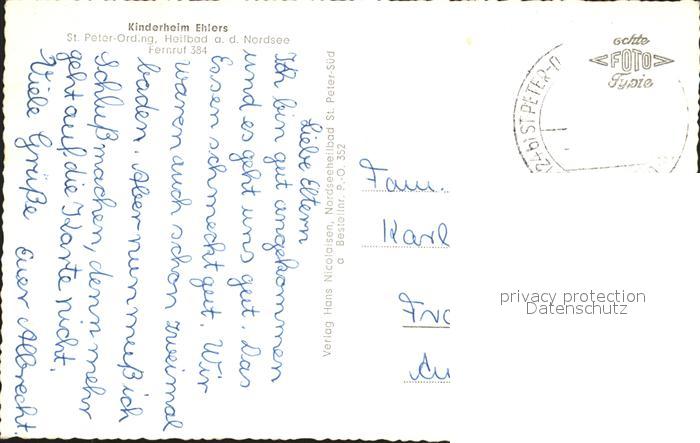 Kinderheim Ehlers
St. Peter-Ording, Heilbad a. d. Nordsee
Fernruf 384
Liebe Eltern
Ich bin gut angekommen
und es geht uns gut. Das
Essen schmeckt gut. Wir
waren auch schon zweimal
baden. Aber nun muß ich
Schluß machen, denn mehr
geht auf die Karte nicht.
Viele Grüße Euer Albrecht.
Verlag Hans Nicolaisen, Nordseeheilbad St. Peter-Süd
a Bestellnr. P.-O. 352
echte
FOTO
Typie
24b) ST PETER-O
Fam.
Karl
Fra
privacy protection
Datenschutz